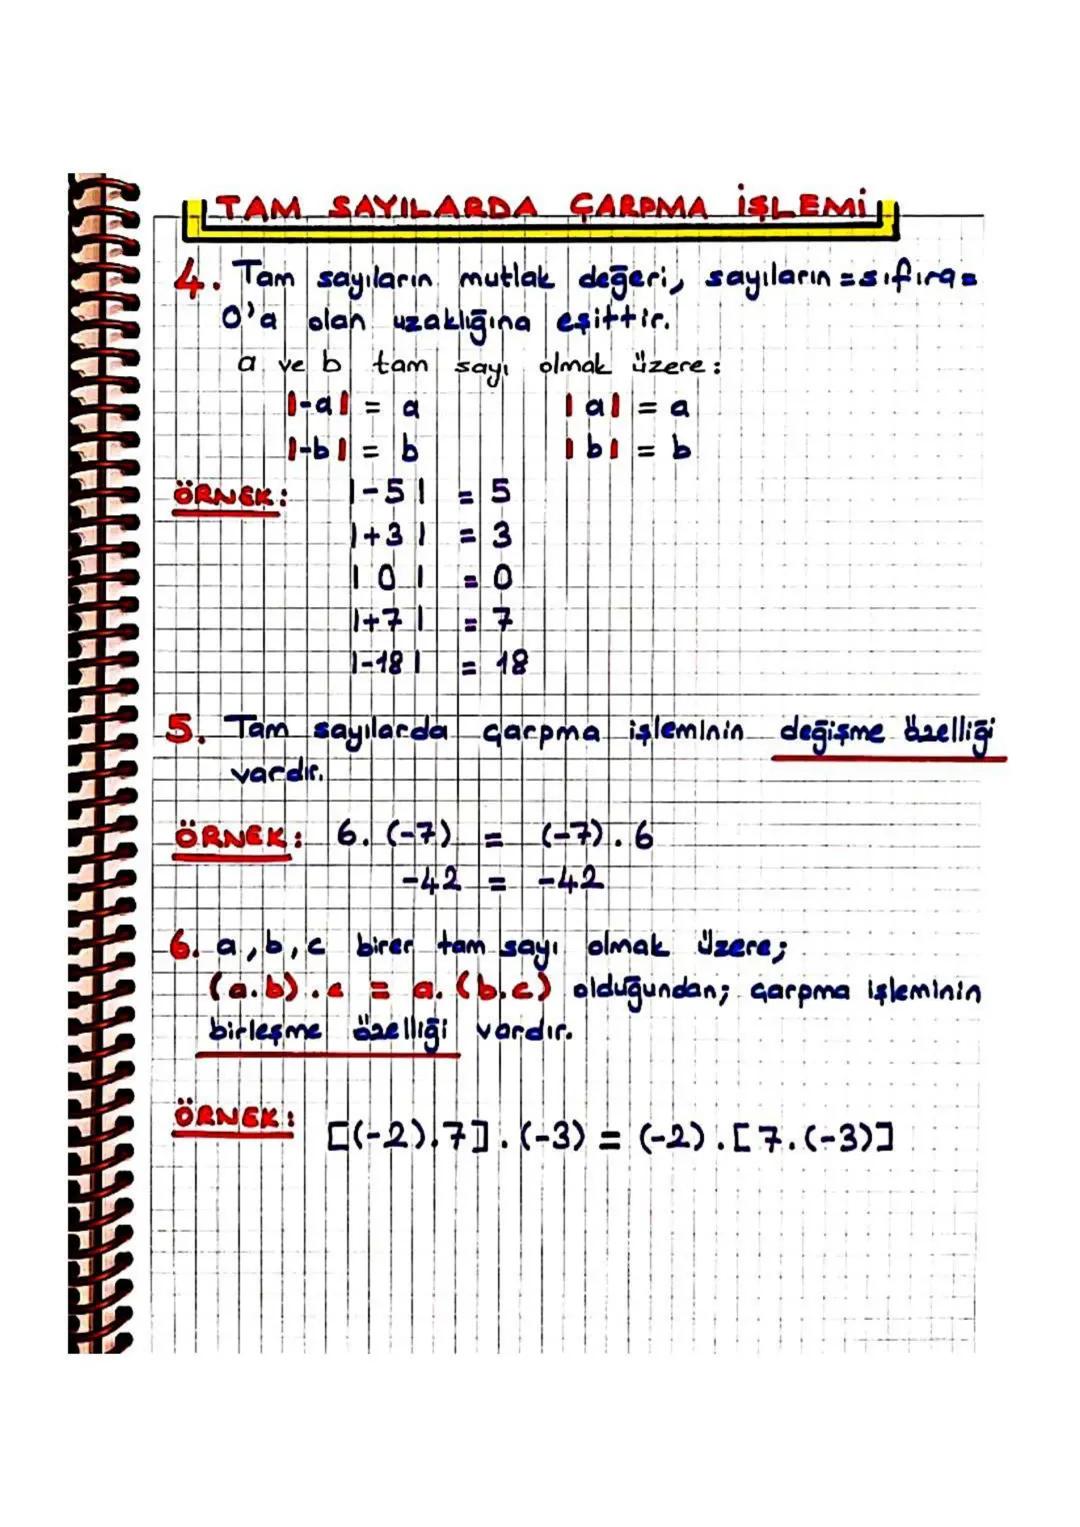 TAM SAYILARDA ÇARPMA İŞLEMİ
4. Tam sayıların mutlak değeri, sayıların =sıfıra=
0'a olan uzaklığına eşittir.
a ve b tam sayı olmak üzere:
|-a| = a |a| = a
|-b| = b |b| = b
ÖRNEK: |-5| = 5
|+3| = 3
|0| = 0
|+7| = 7
|-18| = 18
5. Tam sayılarda çarpma işleminin değişme özelliği
vardır.
ÖRNEK: 6.(-7) = (-7).6
-42 = -42
6. a, b, c birer tam sayı olmak üzere;
(a.b).c = a.(b.c) olduğundan; çarpma işleminin
birleşme özelliği vardır.
ÖRNEK: [(-2).7].(-3) = (-2).[7.(-3)]